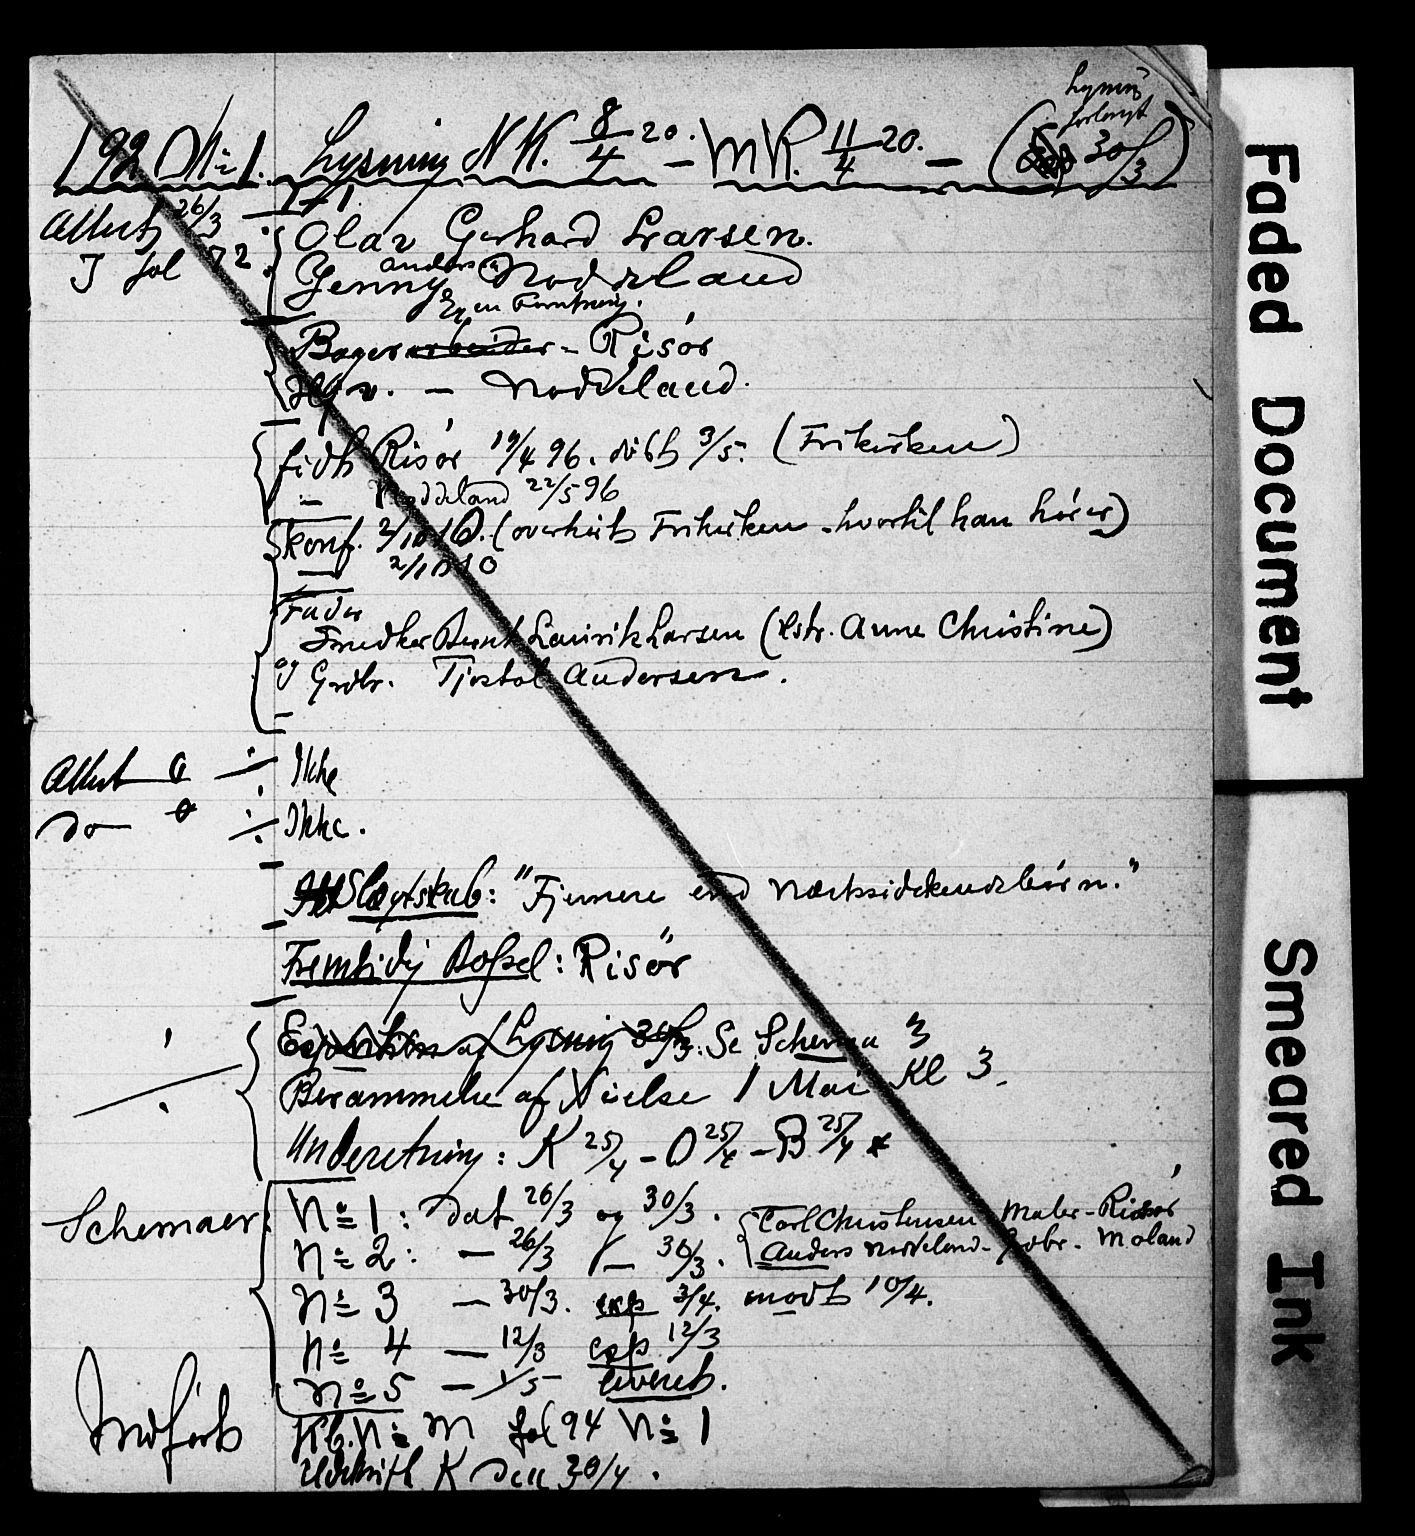 Lysning
forlangt
192 № 1. Lysning NK. 8/4 20. - MK. 11/4 20. - ( 30/3 )
Attest 26/3
I fol 72
Olav Gerhard Larsen.
Anders
Jenny Noddeland
Egen Forretning.
Bagerarbeider - Risör
- Noddeland.
född Risör 19/4 96. döbt 3/5. (Frikirken)
- Noddeland 22/5 96
Konf. 2/10 10. (overhört Frikirken - hvortil han hörer)
2/10 10
Fader
Smedker Bernt Lauritz Larsen (hstr. Anne Christine)
og Grdbr. Tjostol Andersen.
Attest 0 ÷ Ikke
do 0 ÷ Ikke.
Slægtskab: "Fjernere end Næstsödskendebörn."
Fremtidig Bopæl: Risör
Expedition af Lysning 30/3: Se Schema 3
Berammelse af Vielse 1 Mai Kl 3.
Underretning: K 25/4 - O 25/4 - B 25/4
Schemaer:
№ 1: dat 26/3 og 30/3. Carl Christensen Maler - Risör
№ 2: - 26/3 - 30/3. Anders Noddeland - Gdbr. Moland
№ 3 - 30/3. exp 3/4. modt 10/4.
№ 4 - 12/3 exp 12/3
№ 5 - 1/5 leveret.
Indfört
Kb. № M fol 94 № 1
Udskrift K den 30/4.
Faded Document
Smeared Ink